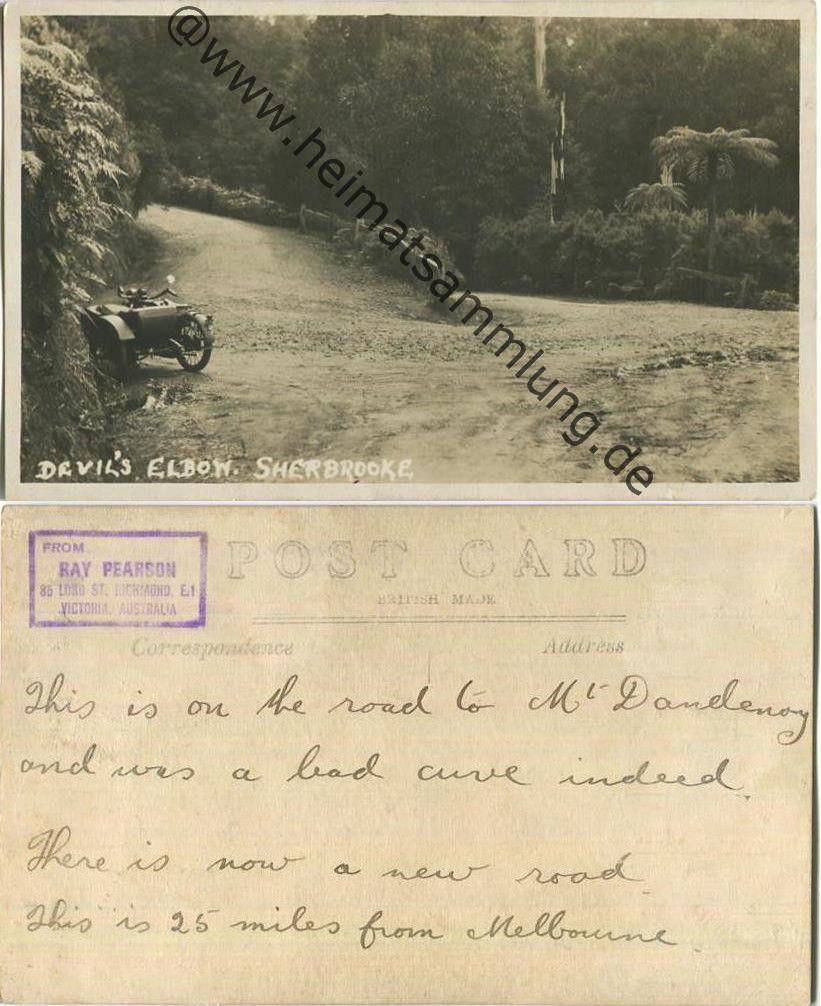 @www.heimatsammlung.de
DEVIL'S ELBOW. SHERBROOKE
FROM
RAY PEARSON
85 LORD ST. RICHMOND, E.1
VICTORIA, AUSTRALIA
POST CARD
BRITISH MADE
Correspondence Address
This is on the road to Mt Dandenoy
and was a bad curve indeed.
There is now a new road.
This is 25 miles from Melbourne.